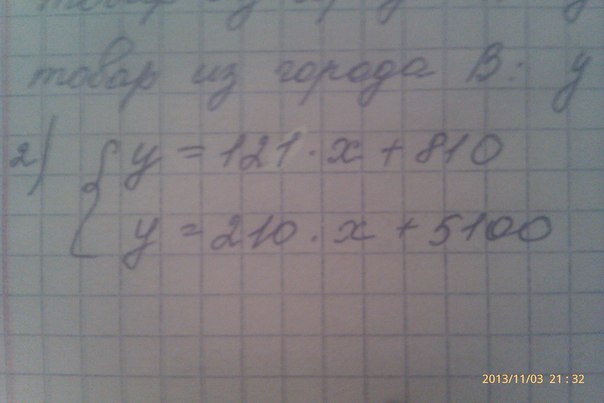 товар из города В: у
2) { y = 121 · x + 810
y = 210 · x + 5100
2013/11/03 21:32